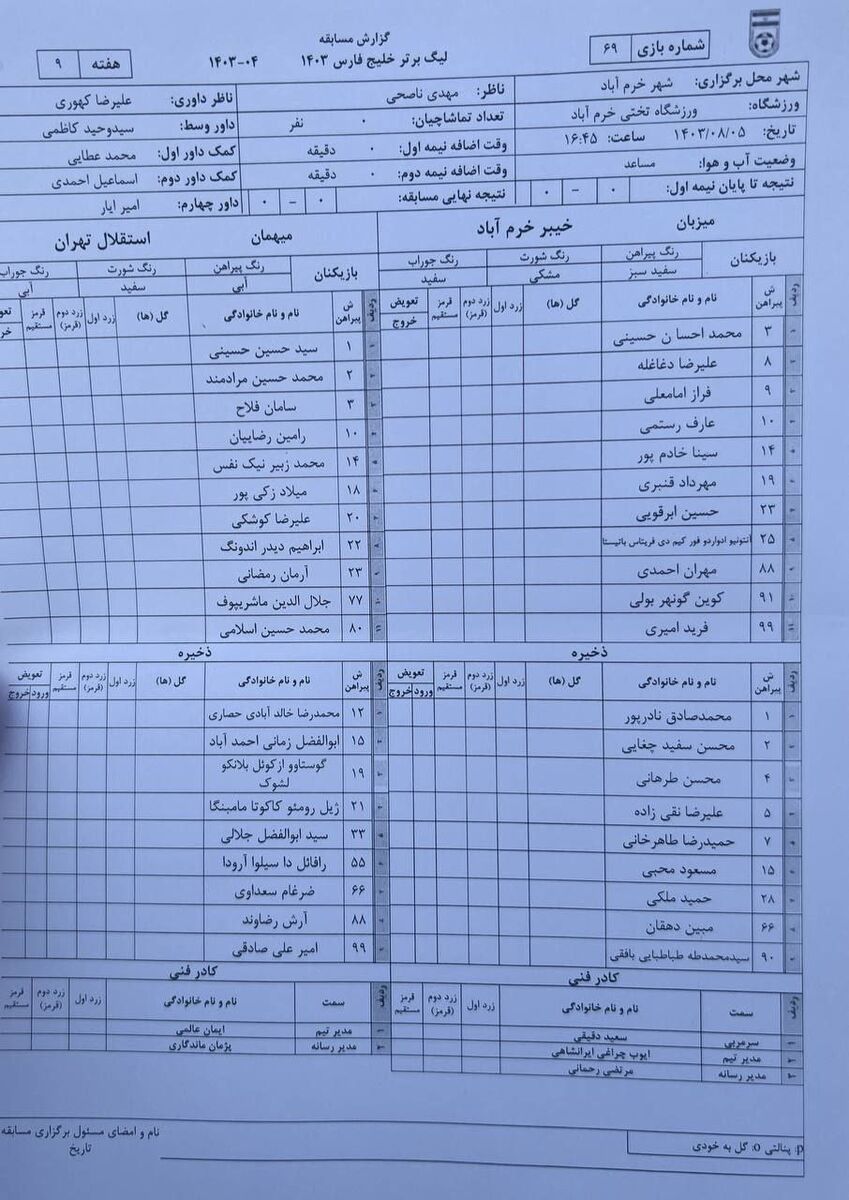 گزارش مسابقه
لیگ برتر خلیج فارس ۱۴۰۳ ۰۴-۱۴۰۳
شماره بازی ۶۹
هفته ۹
شهر محل برگزاری: شهر خرم آباد
ورزشگاه: ورزشگاه تختی خرم آباد
تاریخ: ۱۴۰۳/۰۸/۰۵ ساعت: ۱۶:۴۵
وضعیت آب و هوا: مساعد
نتیجه تا پایان نیمه اول: ۰ – ۰
ناظر: مهدی ناصحی
تعداد تماشاچیان: ۰ نفر
وقت اضافه نیمه اول: ۰ دقیقه
وقت اضافه نیمه دوم: ۰ دقیقه
نتیجه نهایی مسابقه: ۰ – ۰
ناظر داوری: علیرضا کهوری
داور وسط: سیدوحید کاظمی
کمک داور اول: محمد عطایی
کمک داور دوم: اسماعیل احمدی
داور چهارم: امیر ایار
میزبان خیبر خرم آباد
بازیکنان رنگ پیراهن رنگ شورت رنگ جوراب
سفید سبز مشکی سفید
ردیف ش پیراهن نام و نام خانوادگی گل (ها) زرد اول زرد دوم (قرمز) قرمز مستقیم تعویض خروج
۱ ۳ محمد احسا ن حسینی
۲ ۸ علیرضا دغاغله
۳ ۹ فراز امامعلی
۴ ۱۰ عارف رستمی
۵ ۱۴ سینا خادم پور
۶ ۱۹ مهرداد قنبری
۷ ۲۳ حسین ابرقویی
۸ ۲۵ آنتونیو ادواردو فور کیم دی فریتاس باتیستا
۹ ۸۸ مهران احمدی
۱۰ ۹۱ کوین گونهر بولی
۱۱ ۹۹ فرید امیری
ذخیره
ردیف ش پیراهن نام و نام خانوادگی گل (ها) زرد اول زرد دوم (قرمز) قرمز مستقیم تعویض ورود خروج
۱ ۱ محمدصادق نادرپور
۲ ۲ محسن سفید چغایی
۳ ۴ محسن طرهانی
۴ ۵ علیرضا نقی زاده
۵ ۷ حمیدرضا طاهرخانی
۶ ۱۵ مسعود محبی
۷ ۲۸ حمید ملکی
۸ ۶۶ مبین دهقان
۹ ۹۰ سیدمحمدطه طباطبایی بافقی
کادر فنی
ردیف سمت نام و نام خانوادگی زرد اول زرد دوم (قرمز) قرمز مستقیم
۱ سرمربی سعید دقیقی
۲ مدیر تیم ایوب چراغی ایرانشاهی
۳ مدیر رسانه مرتضی رحمانی
میهمان استقلال تهران
بازیکنان رنگ پیراهن رنگ شورت رنگ جوراب
آبی سفید آبی
ردیف ش پیراهن نام و نام خانوادگی گل (ها) زرد اول زرد دوم (قرمز) قرمز مستقیم خروج
۱ ۱ سید حسین حسینی
۲ ۲ محمد حسین مرادمند
۳ ۳ سامان فلاح
۴ ۱۰ رامین رضاییان
۵ ۱۴ محمد زبیر نیک نفس
۶ ۱۸ میلاد زکی پور
۷ ۲۰ علیرضا کوشکی
۸ ۲۲ ابراهیم دیدر اندونگ
۹ ۲۳ آرمان رمضانی
۱۰ ۷۷ جلال الدین ماشریپوف
۱۱ ۸۰ محمد حسین اسلامی
ذخیره
ردیف ش پیراهن نام و نام خانوادگی گل (ها) زرد اول زرد دوم (قرمز) قرمز مستقیم تعویض ورود خروج
۱ ۱۲ محمدرضا خالد آبادی حصاری
۲ ۱۵ ابوالفضل زمانی احمد آباد
۳ ۱۹ گوستاوو ازکوئل بلانکو
لشوک
۴ ۲۱ ژیل رومئو کاکوتا مامبنگا
۵ ۳۳ سید ابوالفضل جلالی
۶ ۵۵ رافائل دا سیلوا آرودا
۷ ۶۶ ضرغام سعداوی
۸ ۸۸ آرش رضاوند
۹ ۹۹ امیر علی صادقی
کادر فنی
ردیف سمت نام و نام خانوادگی زرد اول زرد دوم (قرمز) قرمز مستقیم
۱ مدیر تیم ایمان عالمی
۲ مدیر رسانه پژمان ماندگاری
p: پنالتی o: گل به خودی
نام و امضای مسئول برگزاری مسابقه
تاریخ